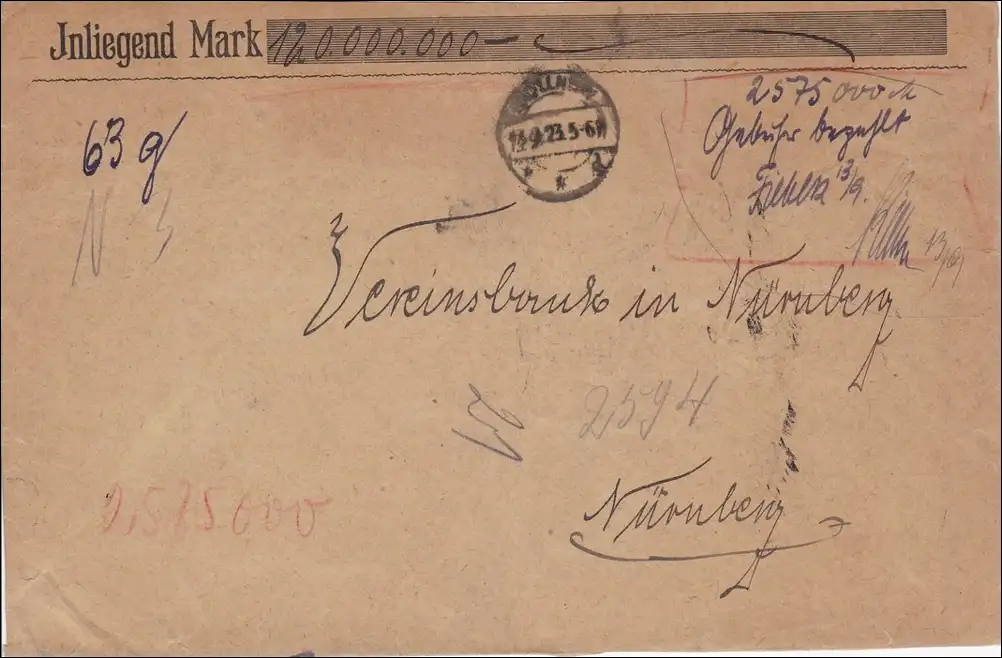 Inliegend Mark 120.000.000 —
2575 000 M
Gebühr bezahlt
13/9.
13/9
63 g
13.9.23.5-6N
Vereinsbank in Nürnberg
2594
Nürnberg
2,575 000